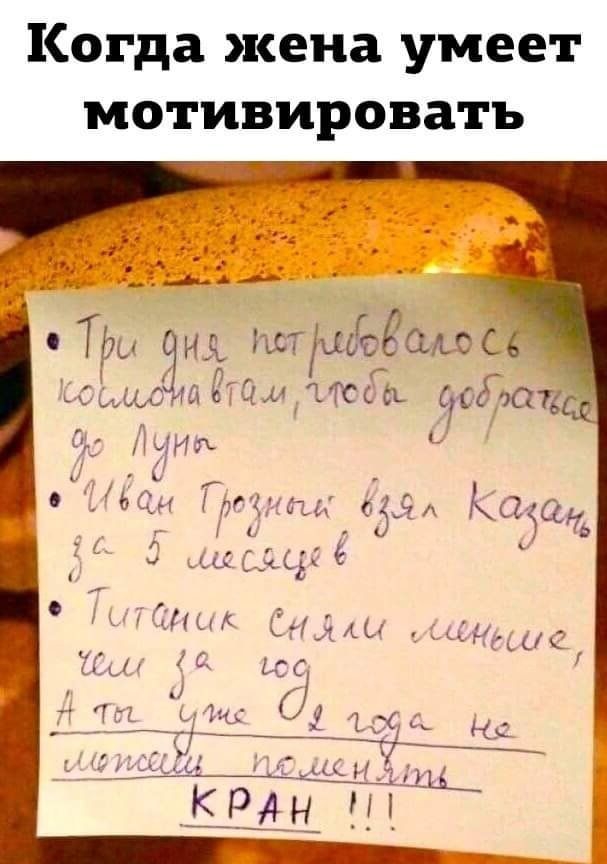 Когда жена умеет
мотивировать
• Три дня потребовалось
космонавтам, чтобы добраться
до Луны
• Иван Грозный взял Казань
за 5 месяцев
• Титаник сняли меньше,
чем за год
А ты уже 2 года не
можешь поменять
КРАН !!!